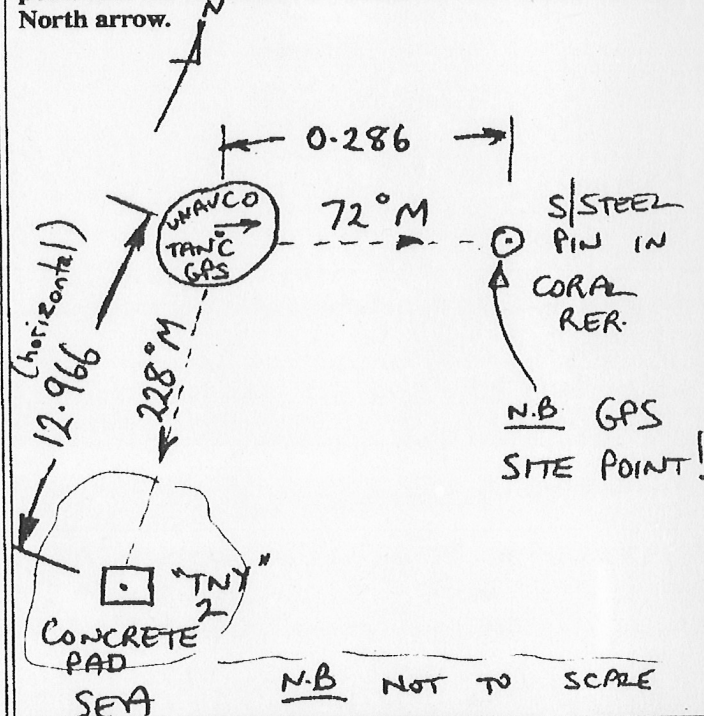 North arrow.
N
0.286
UNAVCO
TANC
GPS
72°M
S/STEEL
PIN IN
CORAL
RER.
(horizontal)
12.966
228°M
N.B GPS
SITE POINT!
"TNY"
2
CONCRETE
PAD
SEA
N.B NOT TO SCALE